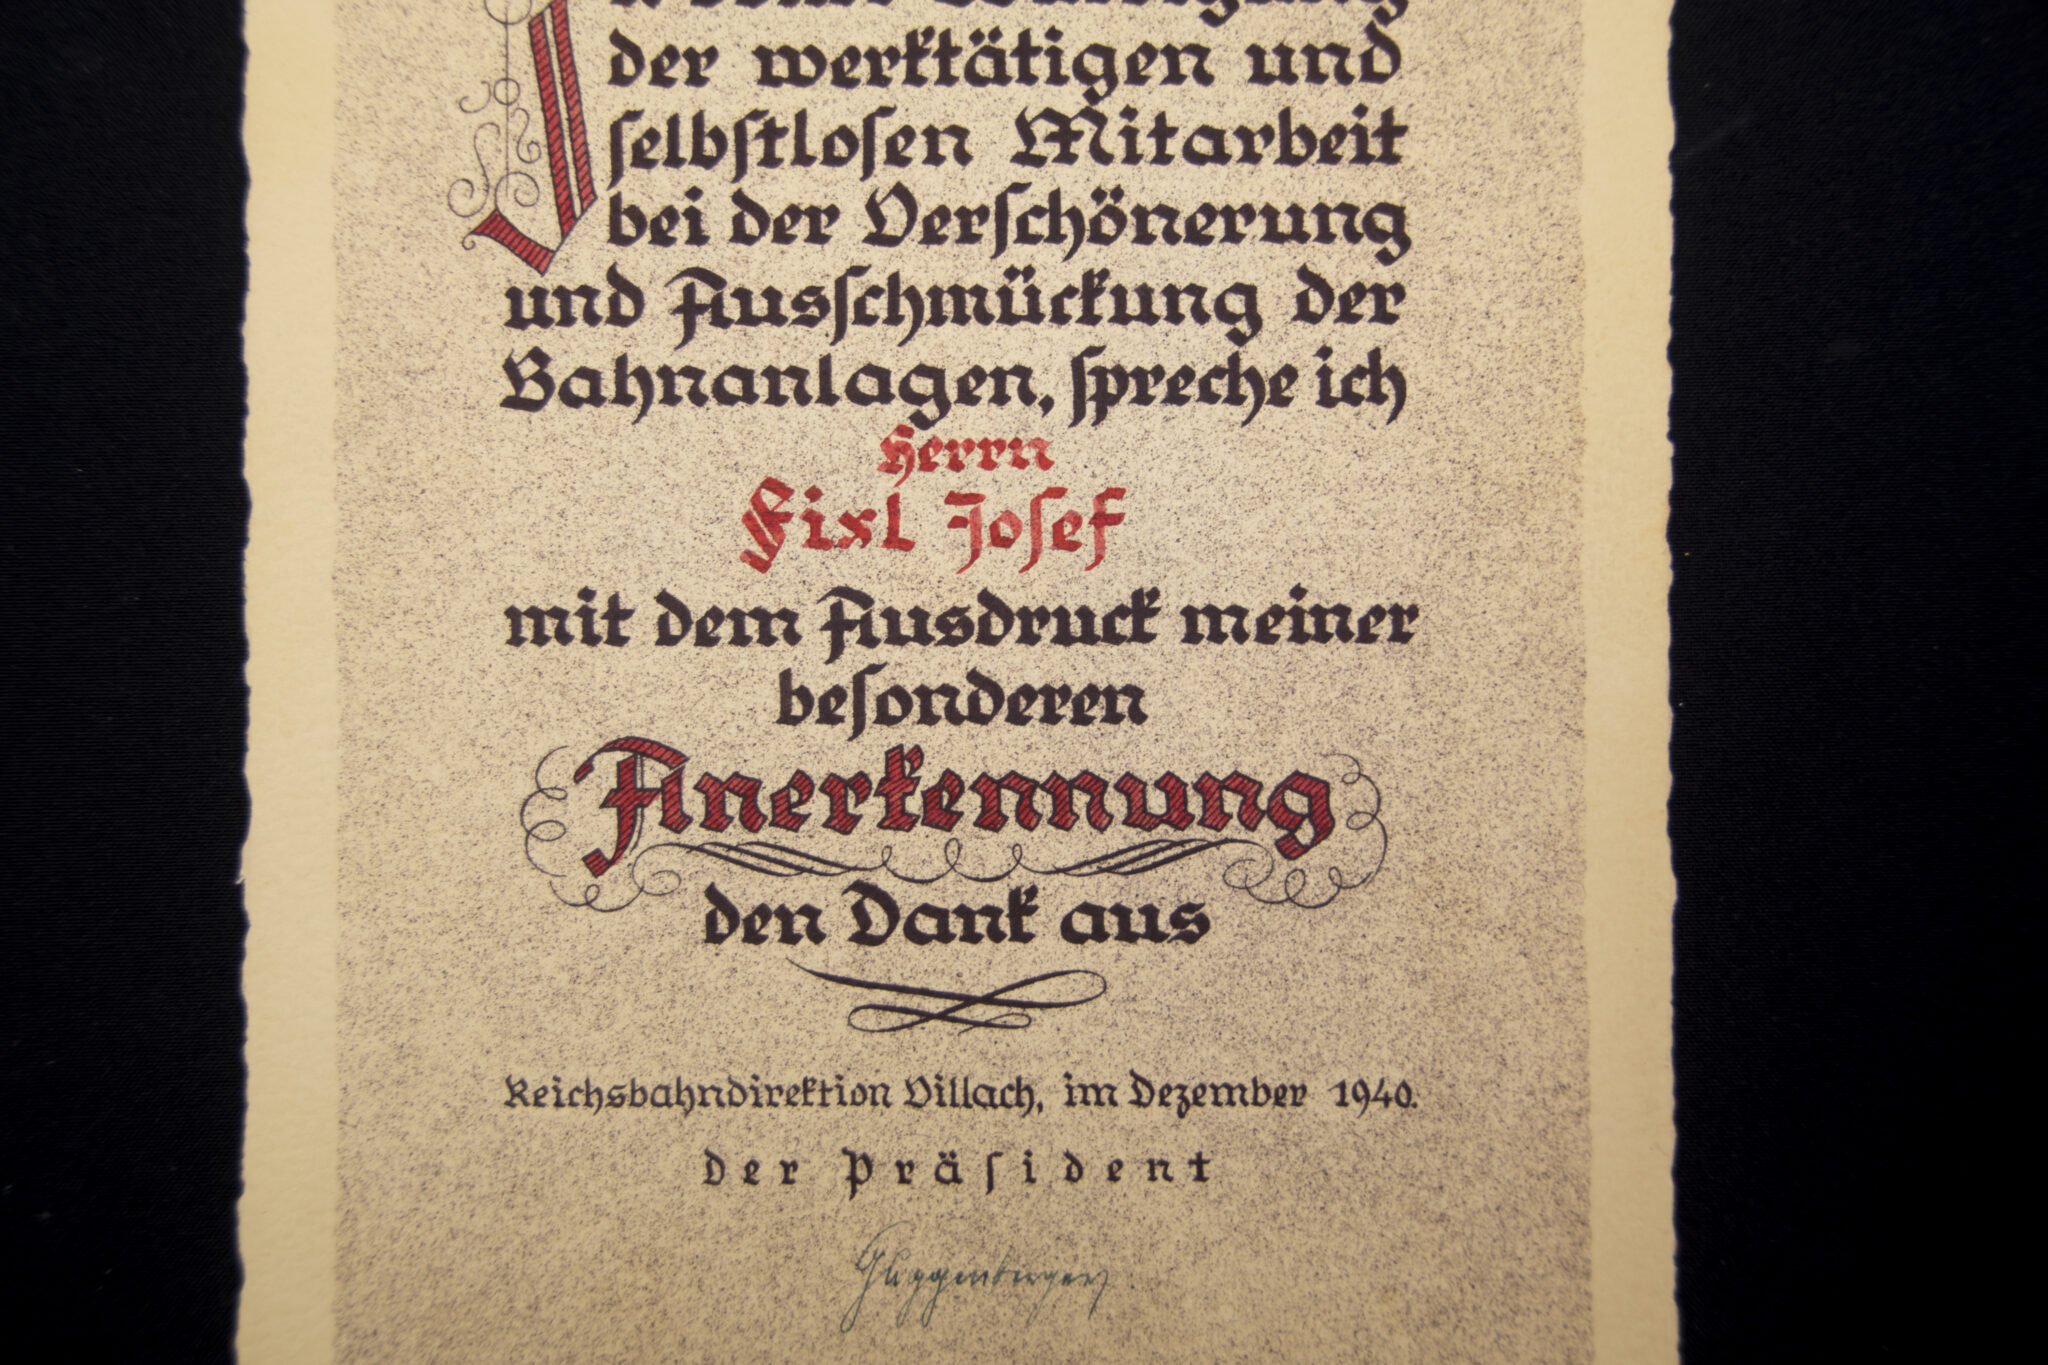 der werktätigen und
ſelbſtloſen Mitarbeit
bei der Verſchönerung
und Ausſchmückung der
Bahnanlagen, ſpreche ich
Herrn
Fixl Joſef
mit dem Ausdruck meiner
beſonderen
Anerkennung
den Dank aus
Reichsbahndirektion Villach, im Dezember 1940.
der Präſident
Guggenberger